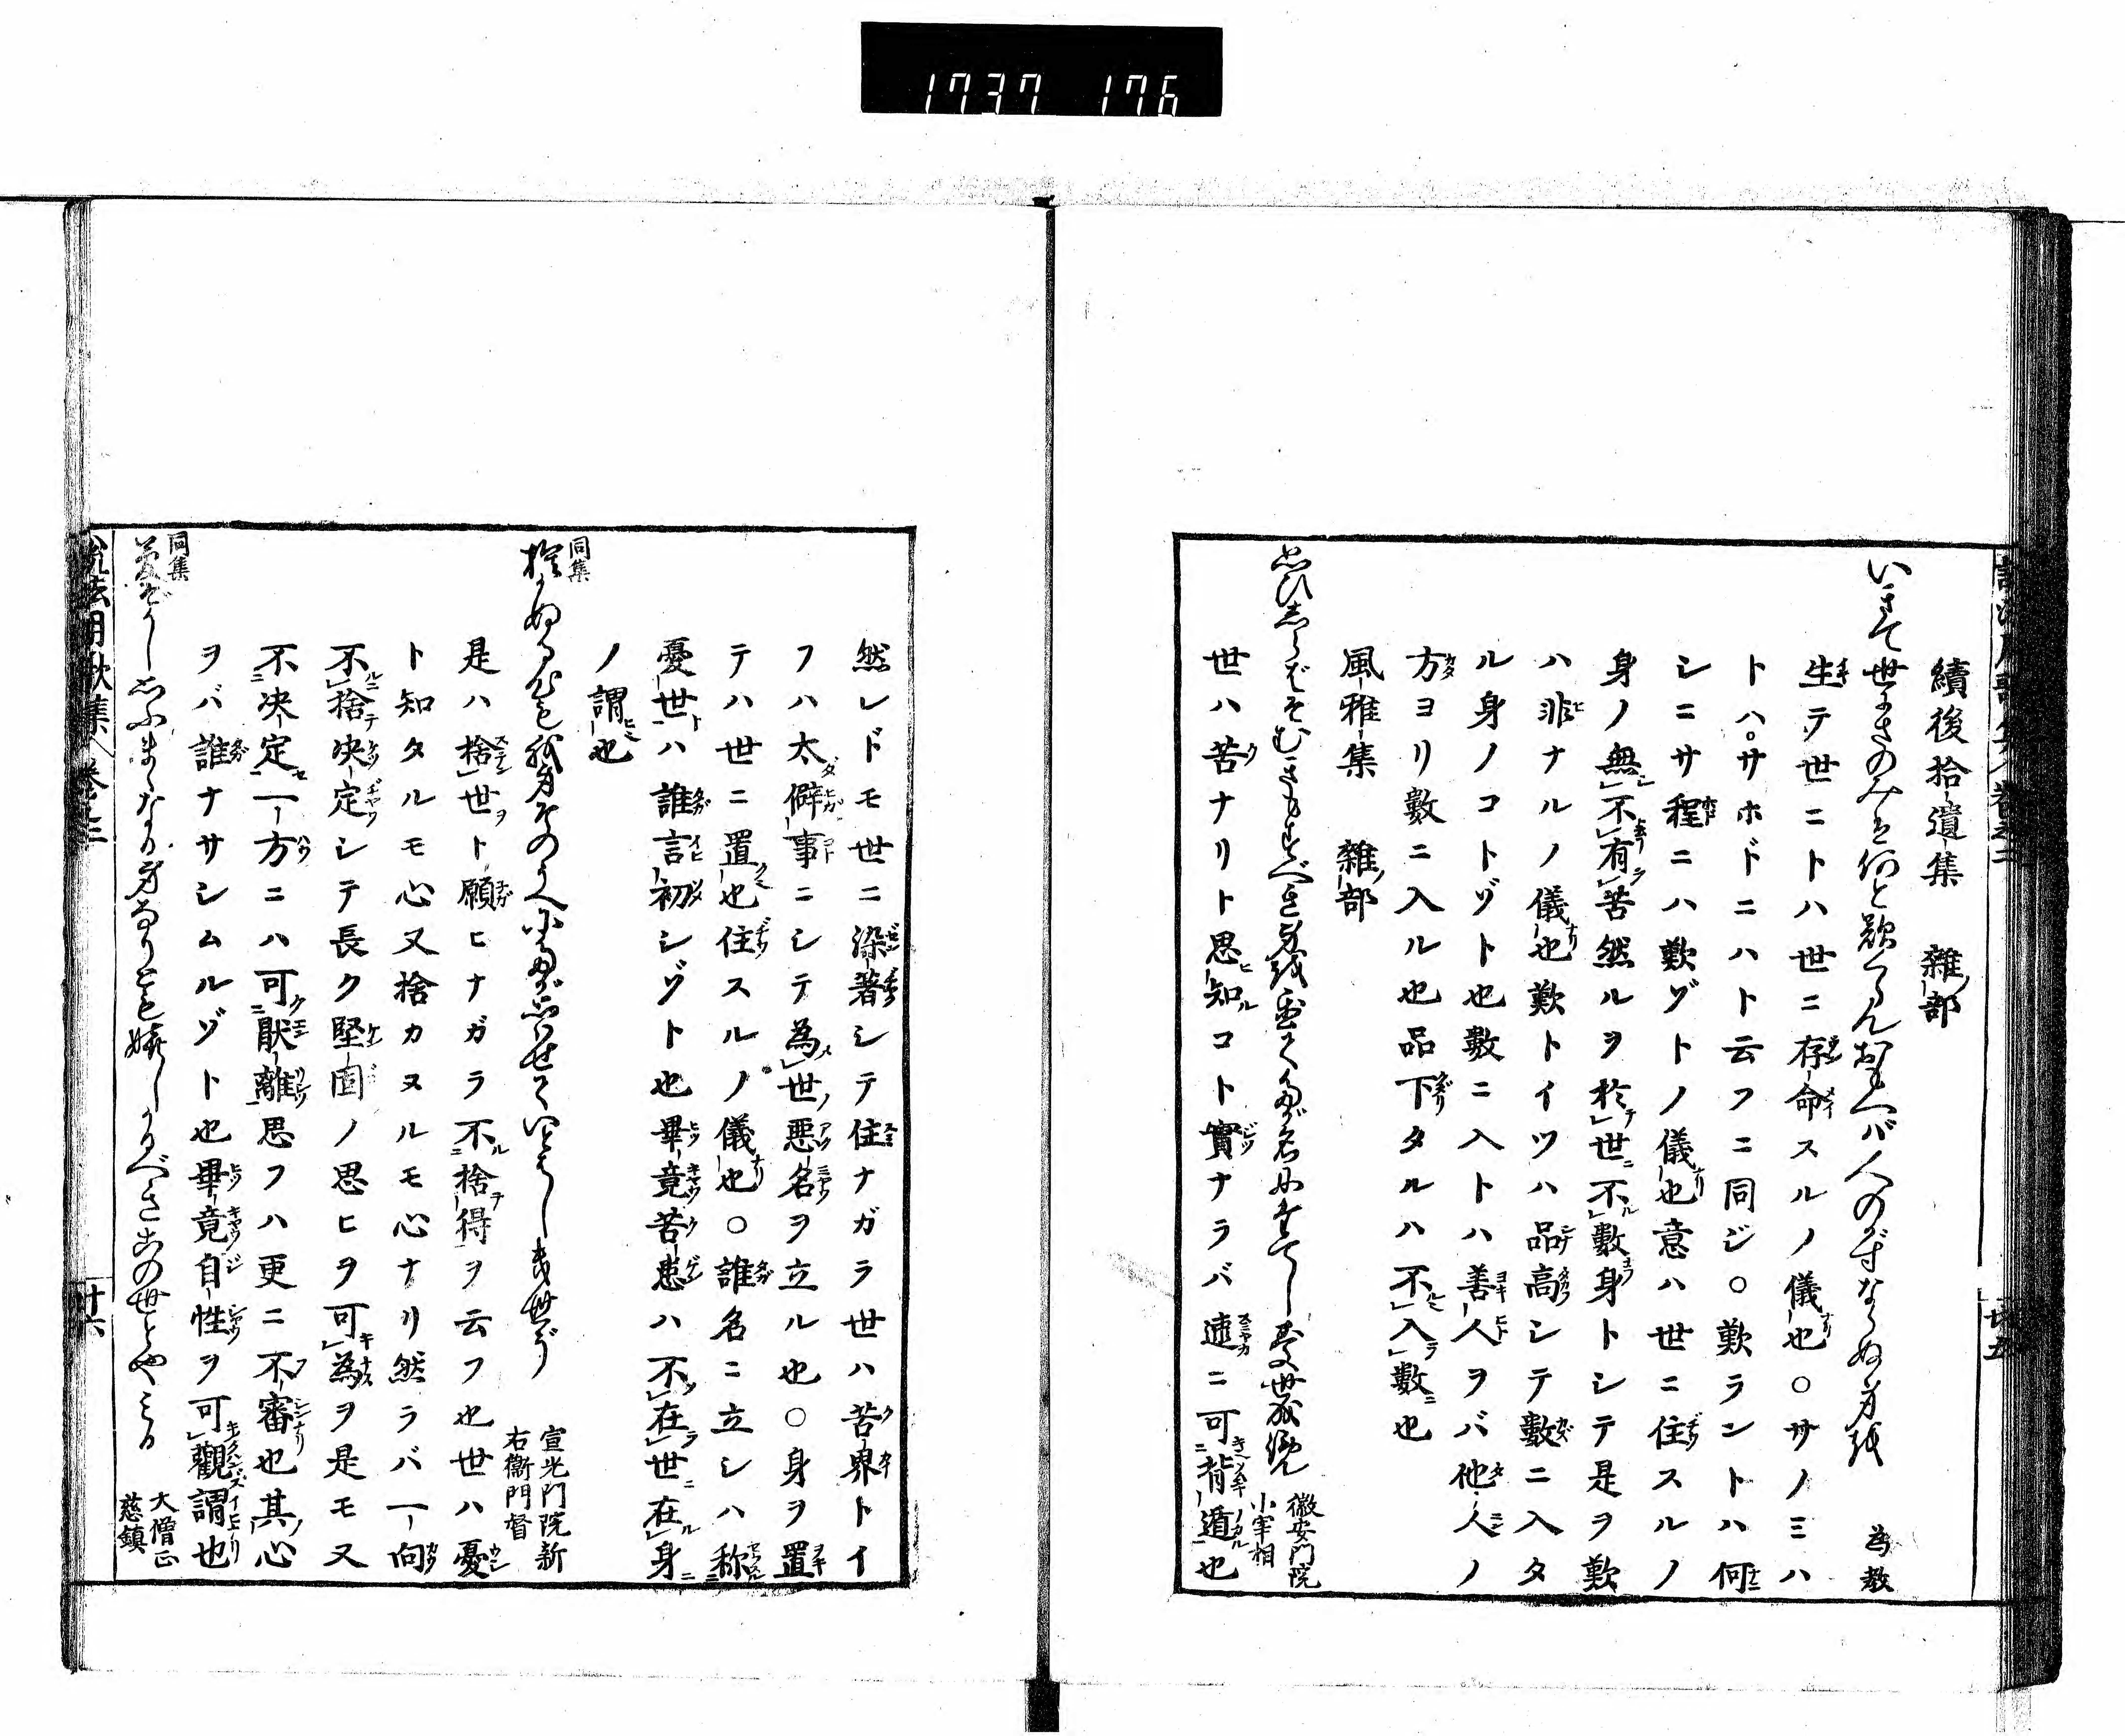 1737 176
續後拾遺集 雜部
いきて世にさのみは何と歎くらんおもへバ人のかずならぬ身を 為教
生テ世ニトハ世ニ存命スルノ儀也○サノミハ
トハ。サホドニハト云フニ同ジ○歎ラントハ何
シニサ程ニハ歎ゾトノ儀也意ハ世ニ住スルノ
身ノ無不有苦然ルヲ於世不數身トシテ是ヲ歎
ハ非ナルノ儀也歎トイツハ品高シテ數ニ入タ
ル身ノコトゾト也數ニ入トハ善人ヲバ他人ノ
方ヨリ數ニ入ル也品下タルハ不入數也
風雅集 雜部
徽安門院小宰相
世ハ苦ナリト思知コト實ナラバ速ニ可背遁也
然レドモ世ニ染著シテ住ナガラ世ハ苦界トイ
フハ太僻事ニシテ為世悪名ヲ立ル也○身ヲ置
テハ世ニ置也住スルノ儀也○誰名ニ立シハ称
憂世ハ誰言初シゾト也畢竟苦患ハ不在世在身
ノ謂也
同集
捨かぬる心も我身そのうへにたが思はせていとはしき世ぞ 宣光門院新右衞門督
是ハ捨世ト願ヒナガラ不捨得ヲ云フ也世ハ憂
ト知タルモ心又捨カヌルモ心ナリ然ラバ一向
不捨决定シテ長ク堅固ノ思ヒヲ可為ヲ是モ又
不决定一方ニハ可厭離思フハ更ニ不審也其心
ヲバ誰ナサシムルゾト也畢竟自性ヲ可觀謂也
同集
大僧正慈鎮
説法用歌集 巻三 廿六